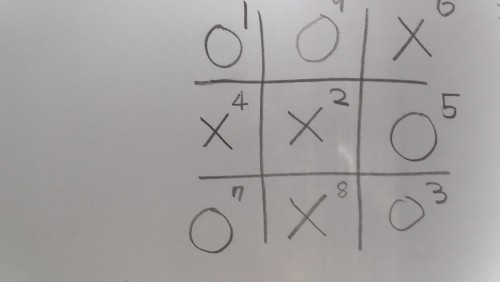 O 1 O 9 X 6
X 4 X 2 O 5
O 7 X 8 O 3